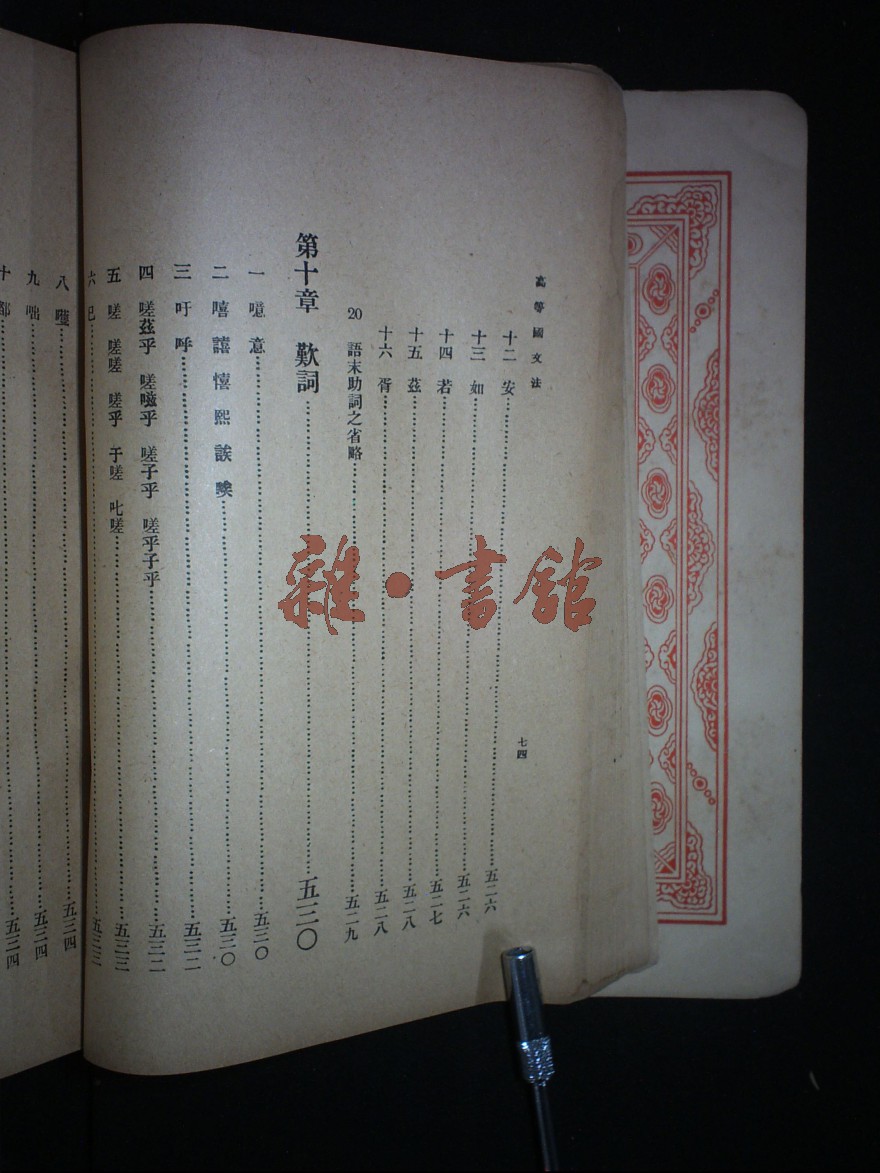 高等國文法
七四
十二 安……五二六
十三 如……五二六
十四 若……五二七
十五 茲……五二八
十六 胥……五二八
20 語末助詞之省略……五二九
第十章 歎詞……五三〇
一 噫 意……五三〇
二 嘻 譆 憘 熙 誒 唉……五三〇
三 吁 呼……五三二
四 嗟茲乎 嗟嗞乎 嗟子乎 嗟乎子乎……五三二
五 嗟 嗟嗟 嗟乎 于嗟 叱嗟……五三三
六 已……五三三
八……五三四
九 咄……五三四
十 都……五三四
雜·書館